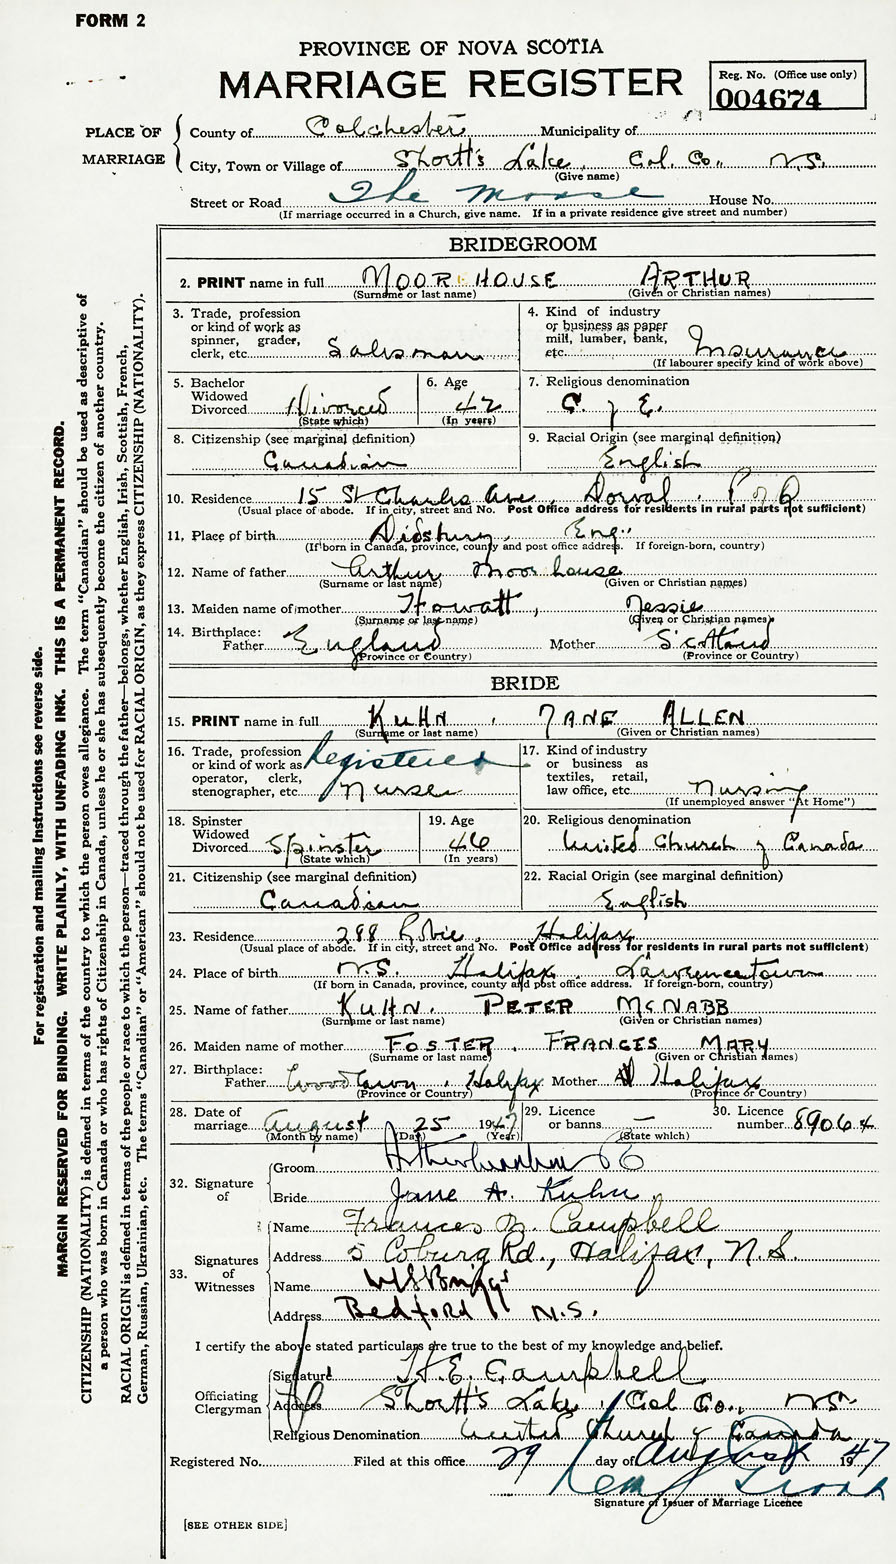 FORM 2
PROVINCE OF NOVA SCOTIA
MARRIAGE REGISTER
Reg. No. (Office use only)
004674
PLACE OF MARRIAGE
County of Colchester Municipality of
City, Town or Village of Shortt's Lake, Col. Co., N.S.
(Give name)
Street or Road The Manse House No.
(If marriage occurred in a Church, give name. If in a private residence give street and number)
BRIDEGROOM
2. PRINT name in full MOORHOUSE ARTHUR
(Surname or last name) (Given or Christian names)
3. Trade, profession
or kind of work as
spinner, grader,
clerk, etc. Salesman
4. Kind of industry
or business as paper
mill, lumber, bank,
etc. Insurance
(If labourer specify kind of work above)
5. Bachelor
Widowed
Divorced Divorced
(State which)
6. Age
42
(In years)
7. Religious denomination
C. of E.
8. Citizenship (see marginal definition)
Canadian
9. Racial Origin (see marginal definition)
English
10. Residence 15 St Charles Ave, Dorval, P of Q
(Usual place of abode. If in city, street and No. Post Office address for residents in rural parts not sufficient)
11. Place of birth Didsbury, Eng.
(If born in Canada, province, county and post office address. If foreign-born, country)
12. Name of father Arthur Moorhouse
(Surname or last name) (Given or Christian names)
13. Maiden name of mother Howatt, Jessie
(Surname or last name) (Given or Christian names)
14. Birthplace:
Father England Mother Scotland
(Province or Country) (Province or Country)
BRIDE
15. PRINT name in full KUHN, JANE ALLEN
(Surname or last name) (Given or Christian names)
16. Trade, profession
or kind of work as
operator, clerk,
stenographer, etc. Registered Nurse
17. Kind of industry
or business as
textiles, retail,
law office, etc. Nursing
(If unemployed answer "At Home")
18. Spinster
Widowed
Divorced Spinster
(State which)
19. Age
46
(In years)
20. Religious denomination
United Church of Canada
21. Citizenship (see marginal definition)
Canadian
22. Racial Origin (see marginal definition)
English
23. Residence 288 Robie, Halifax
(Usual place of abode. If in city, street and No. Post Office address for residents in rural parts not sufficient)
24. Place of birth N.S. Halifax. Lawrencetown
(If born in Canada, province, county and post office address. If foreign-born, country)
25. Name of father KUHN. PETER McNABB
(Surname or last name) (Given or Christian names)
26. Maiden name of mother FOSTER, FRANCES MARY
(Surname or last name) (Given or Christian names)
27. Birthplace:
Father Halifax Mother Halifax
(Province or Country) (Province or Country)
28. Date of
marriage August 25 1947
(Month by name) (Day) (Year)
29. Licence
or banns —
(State which)
30. Licence
number 89064
32. Signature
of
Groom
Bride Jane A. Kuhn
33. Signatures
of
Witnesses
Name Frances M. Campbell
Address 5 Coburg Rd., Halifax, N.S.
Name
Address Bedford N.S.
I certify the above stated particulars are true to the best of my knowledge and belief.
Officiating
Clergyman
Signature H. E. Campbell
Address Shortt's Lake, Col Co., N.S.
Religious Denomination United Church of Canada
Registered No. Filed at this office 29 day of August 1947
Signature of Issuer of Marriage Licence
[SEE OTHER SIDE]
For registration and mailing instructions see reverse side.
MARGIN RESERVED FOR BINDING. WRITE PLAINLY, WITH UNFADING INK. THIS IS A PERMANENT RECORD.
CITIZENSHIP (NATIONALITY) is defined in terms of the country to which the person owes allegiance. The term "Canadian" should be used as descriptive of
a person who was born in Canada or who has rights of Citizenship in Canada, unless he or she has subsequently become the citizen of another country.
RACIAL ORIGIN is defined in terms of the people or race to which the person—traced through the father—belongs, whether English, Irish, Scottish, French,
German, Russian, Ukrainian, etc. The terms "Canadian" or "American" should not be used for RACIAL ORIGIN, as they express CITIZENSHIP (NATIONALITY).